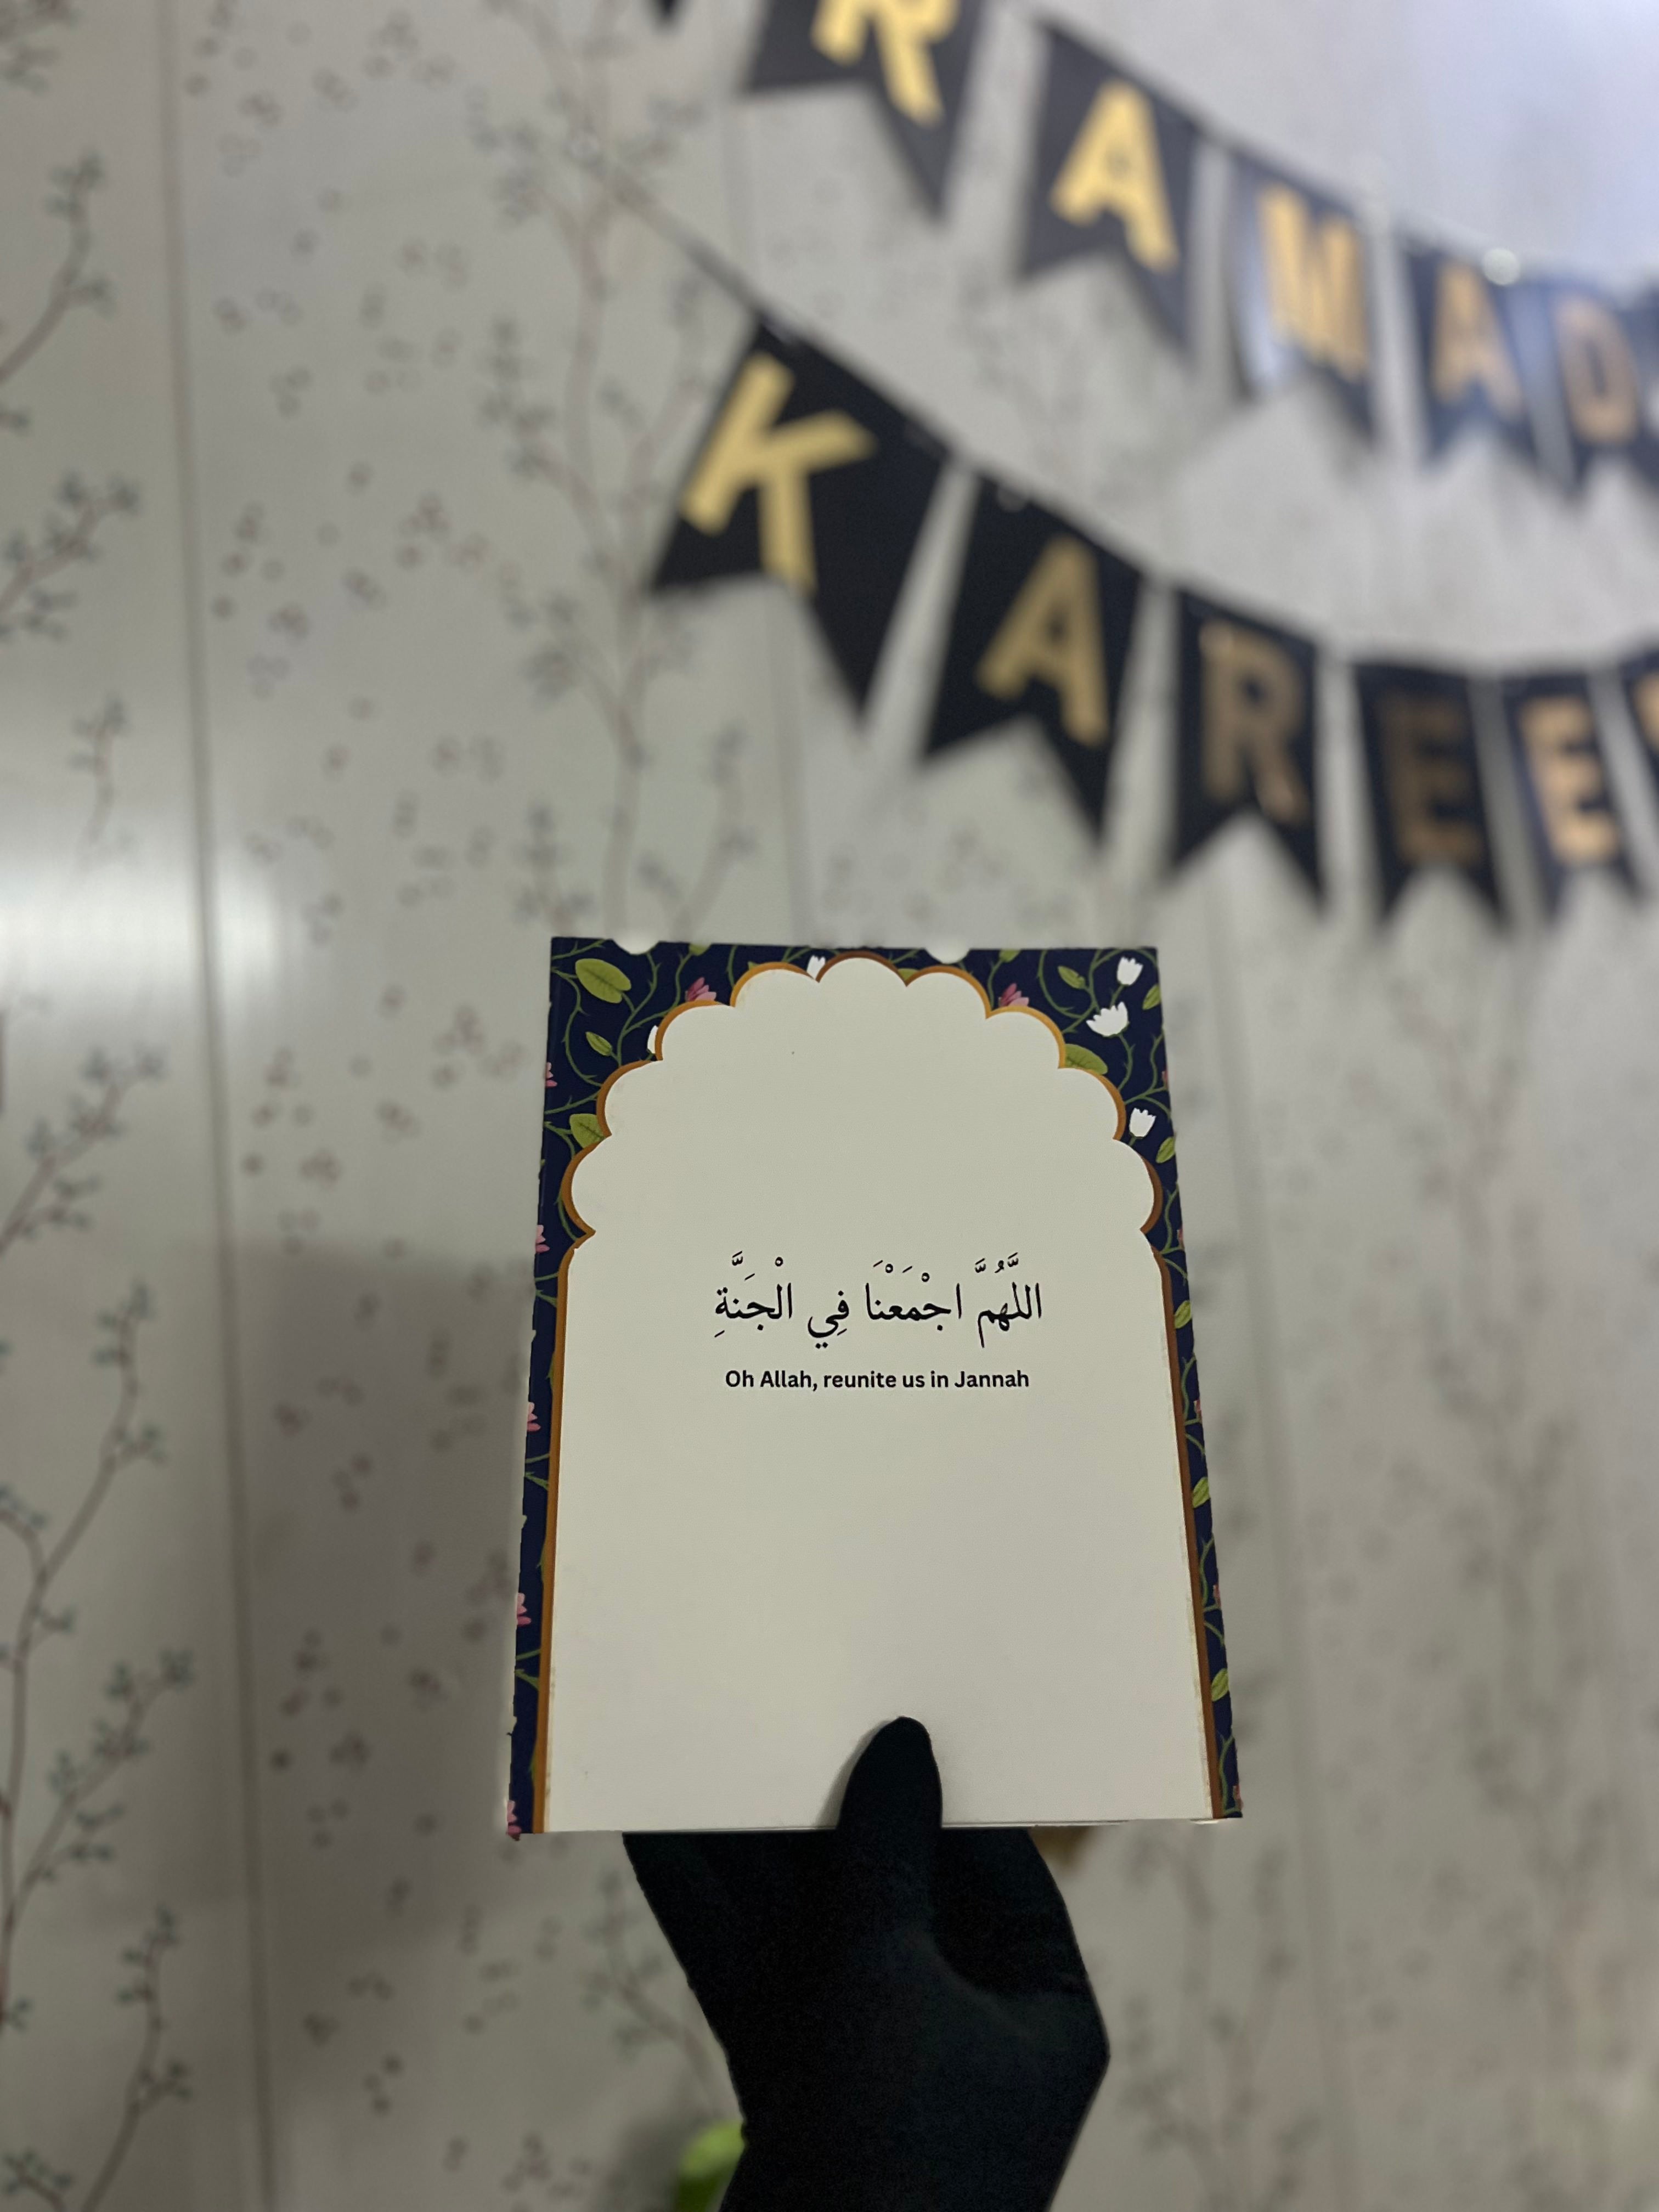 RAMAD
KAREE
اللَّهُمَّ اجْمَعْنَا فِي الْجَنَّةِ
Oh Allah, reunite us in Jannah